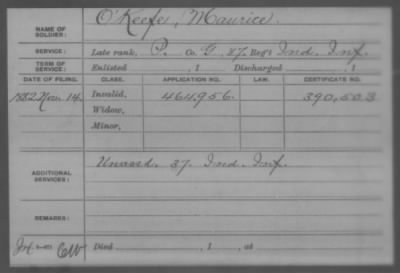 NAME OF SOLDIER: O'Keefe, Maurice.
SERVICE: Late rank, P. Co. G. 27. Reg't Ind. Inf.
TERM OF SERVICE: Enlisted , 1 Discharged , 1
DATE OF FILING. CLASS. APPLICATION NO. LAW. CERTIFICATE NO.
1882 Nov. 14. Invalid, 464,956. 390,503
Widow,
Minor,
ADDITIONAL SERVICES: Unassd. 37. Ind. Inf.
REMARKS:
Died , 1 , at